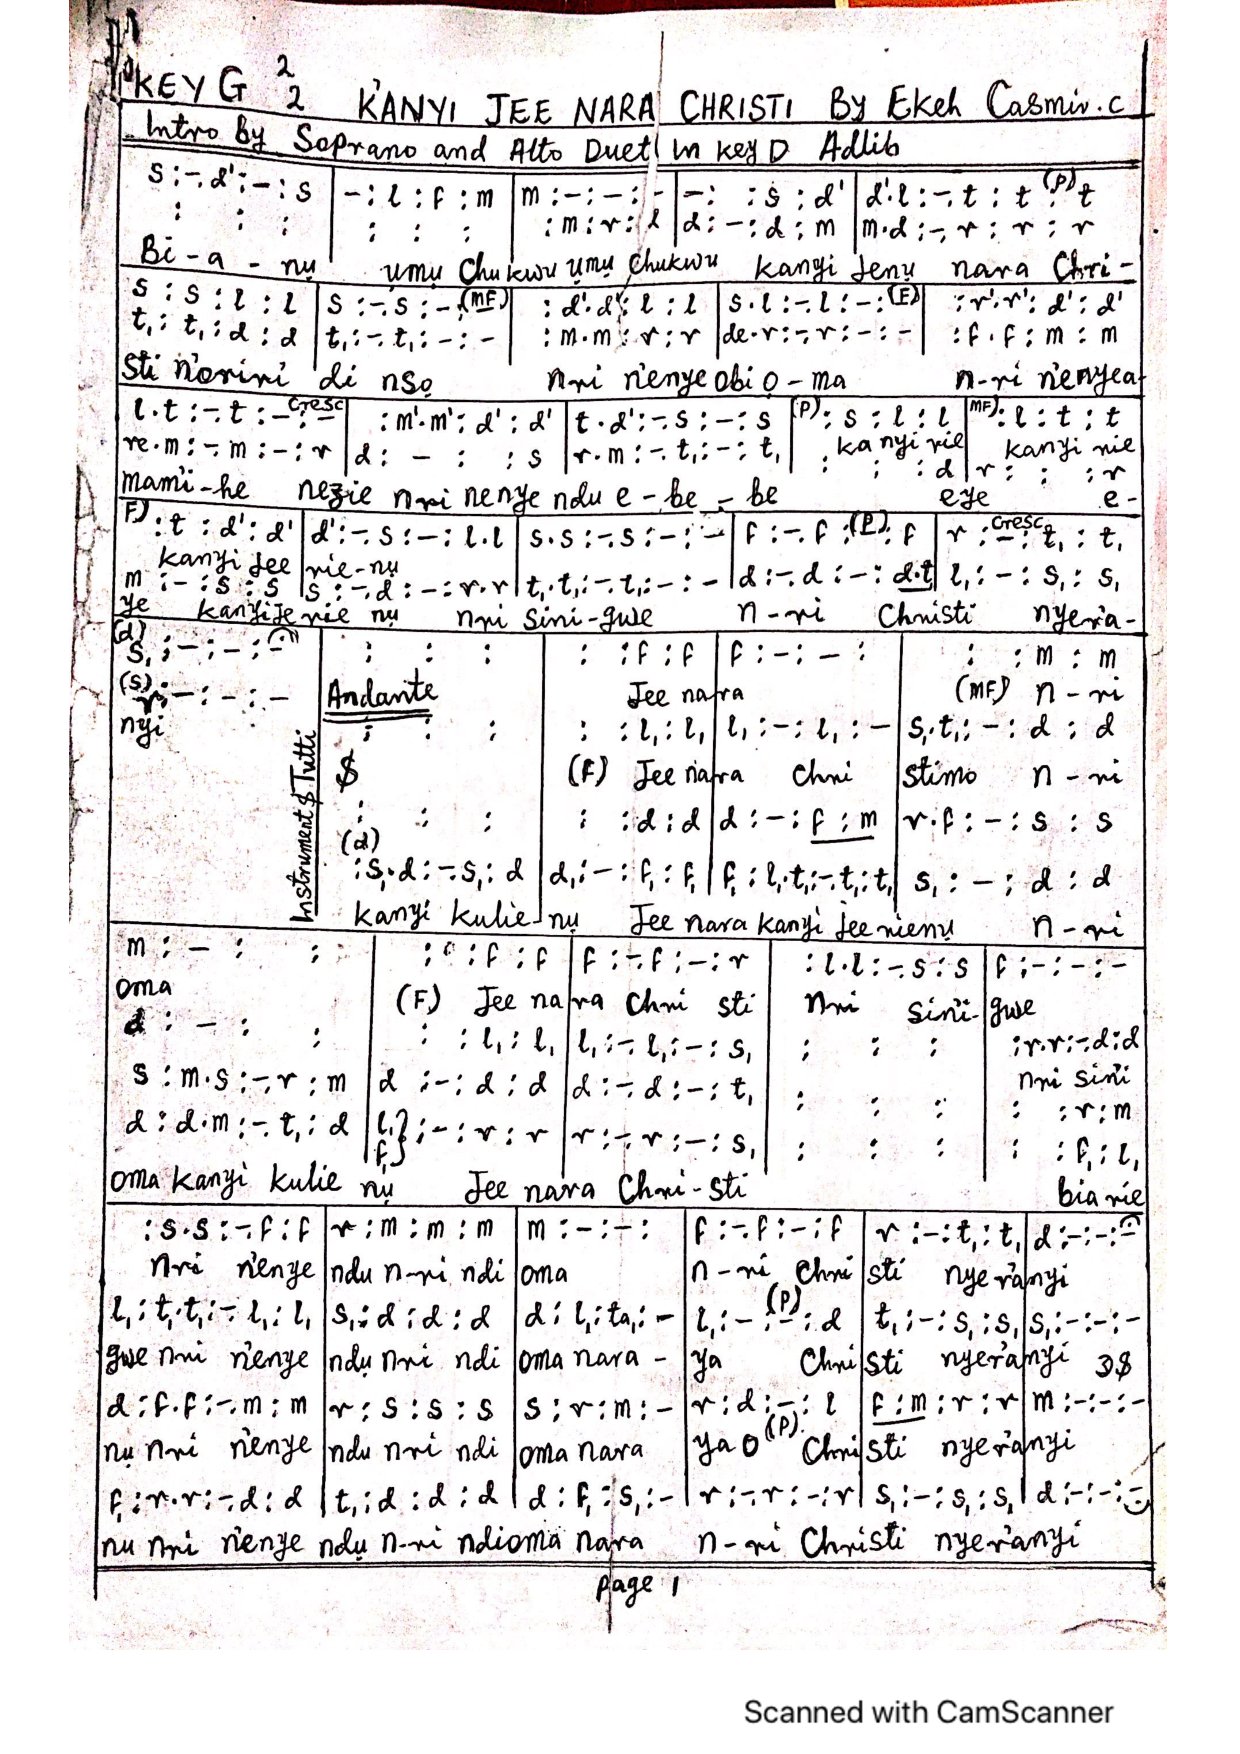 KEY G 2/2 K'ANYI JEE NARA CHRISTI By Ekeh Casmir.c
Intro By Soprano and Alto Duet in key D Adlib
s :-. d' : - : s | - : l : f : m | m : - : - : - | - : : s : d' | d'.l : -. t : t (P) t
: : : | : : : | : m : r : l | d : - : d : m | m.d : -. r : r : r
Bi - a - nụ ụmụ Chukwu ụmụ Chukwu kanyi Jenụ nara Chri -
s : s : l : l | s : -. s : - (MF) | : d'.d' : l : l | s.l : -. l : - : (F) | : r'.r' : d' : d'
t, : t, : d : d | t, : -. t, : - : - | : m.m : r : r | de.r : -. r : - : - | : f.f : m : m
sti n'oriri di nsọ nri n'enye obi ọ - ma n-ri n'enyea-
l.t : -. t : - Cresc | : m'.m' : d' : d' | t.d' : -. s : - : s | (P) : s : l : l | MF) : l : t : t
kanyi rie kanyi rie
re.m : -. m : - : r | d : - : : s | r.m : -. t, : - : t, | : : : d | r : : : r
mami-he nezie nri nenye ndu e - be - be eye e -
F) : t : d' : d' | d' : -. s : - : l.l | s.s : -. s : - : - | f : -. f : (P) : f | r : Cresc : t, : t,
kanyi Jee rie-nụ
m : - : s : s | s : -. d : - : r.r | t,.t, : -. t, : - : - | d : -. d : - : d.t, | l, : - : s, : s,
ye kanyi Je rie nụ nri Sini-gwe n - ri Christi nyera-
(d) s, : - : - : - | : : : | : : f : f | f : - : - : | : : m : m
Andante Jee nara (MF) n - ri
(s) r : - : - : - | : : : | : : l, : l, | l, : - : l, : - | s,.t, : - : d : d
nyi
Instrument & Tutti
$ (F) Jee nara Chri stimo n - ri
: : : | : : d : d | d : - : f : m | r.f : - : s : s
(d) : s,.d : -. s, : d | d, : - : f, : f, | f, : l,.t, : -. t, : t, | s, : - : d : d
kanyi kulie-nụ Jee nara kanyi jee rienụ n - ri
m : - : : | : : f : f | f : -. f : - : r | : l.l : -. s : s | f : - : - : -
oma (F) Jee nara Chri sti nri sini-gwe
d : - : : | : : l, : l, | l, : -. l, : - : s, | : : : | : r.r : -. d : d
nri sini
s : m.s : -. r : m | d : - : d : d | d : -. d : - : t, | : : : | : : r : m
d : d.m : -. t, : d | l, f, } : - : r : r | r : -. r : - : s, | : : : | : : f, : l,
oma kanyi kulie nụ Jee nara Chri-sti bia rie
: s.s : -. f : f | r : m : m : m | m : - : - : | f : -. f : - : f | r : - : t, : t, | d : - : - : -
nri n'enye ndụ n-ri ndi oma n - ri Chri sti nyer'anyi
l, : t,.t, : -. l, : l, | s, : d : d : d | d : l, : ta, : - | l, : - : (P) - : d | t, : - : s, : s, | s, : - : - : -
gwe nri n'enye ndụ nri ndi oma nara - ya Christi nyer'anyi 3$
d : f.f : -. m : m | r : s : s : s | s : r : m : - | r : d : - : l | f : m : r : r | m : - : - : -
nụ nri n'enye ndụ nri ndi oma nara ya O (P) Christi nyer'anyi
f, : r.r : -. d : d | t, : d : d : d | d : f, : s, : - | r : -. r : - : r | s, : - : s, : s, | d : - : - : -
nu nri n'enye ndụ n-ri ndioma nara n - ri Christi nyer'anyi
page 1
Scanned with CamScanner